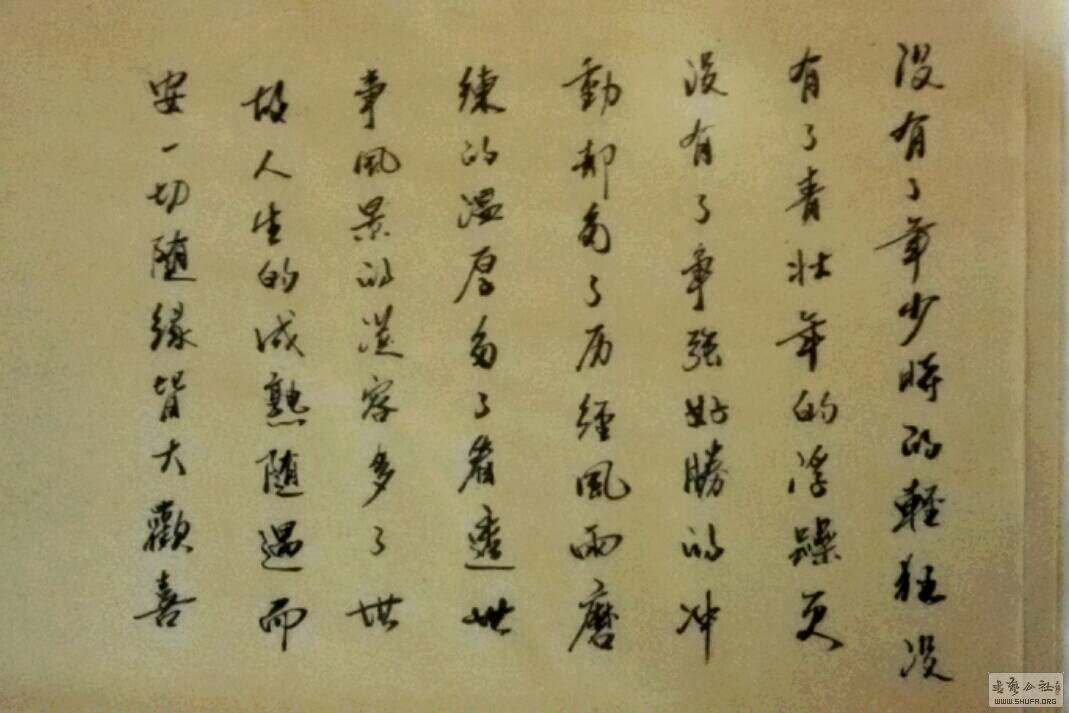 没有了年少時的輕狂没
有了青壮年的浮躁更
没有了争强好勝的冲
動却多了历經風雨磨
練的温厚多了看透世
事風景的從容多了世
故人生的成熟随遇而
安一切随緣皆大歡喜
WWW.SHUFA.ORG